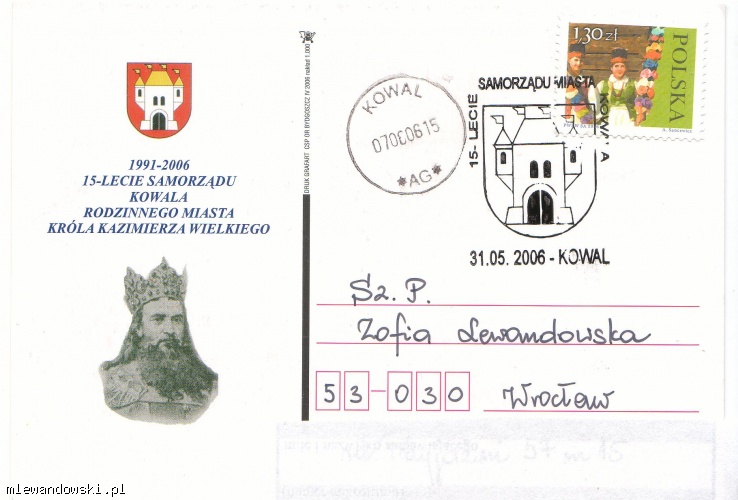 1991-2006
15-LECIE SAMORZĄDU
KOWALA
RODZINNEGO MIASTA
KRÓLA KAZIMIERZA WIELKIEGO
DRUK GRAFART CSP OR BYDGOSZCZ IV 2006 nakład 1.000
KOWAL
070606 15
*AG*
15-LECIE SAMORZĄDU MIASTA KOWALA
31.05. 2006 - KOWAL
1,30 zł
POLSKA
Sz. P.
Zofia Lewandowska
53-030 Wrocław
57 m 15
mlewandowski.pl